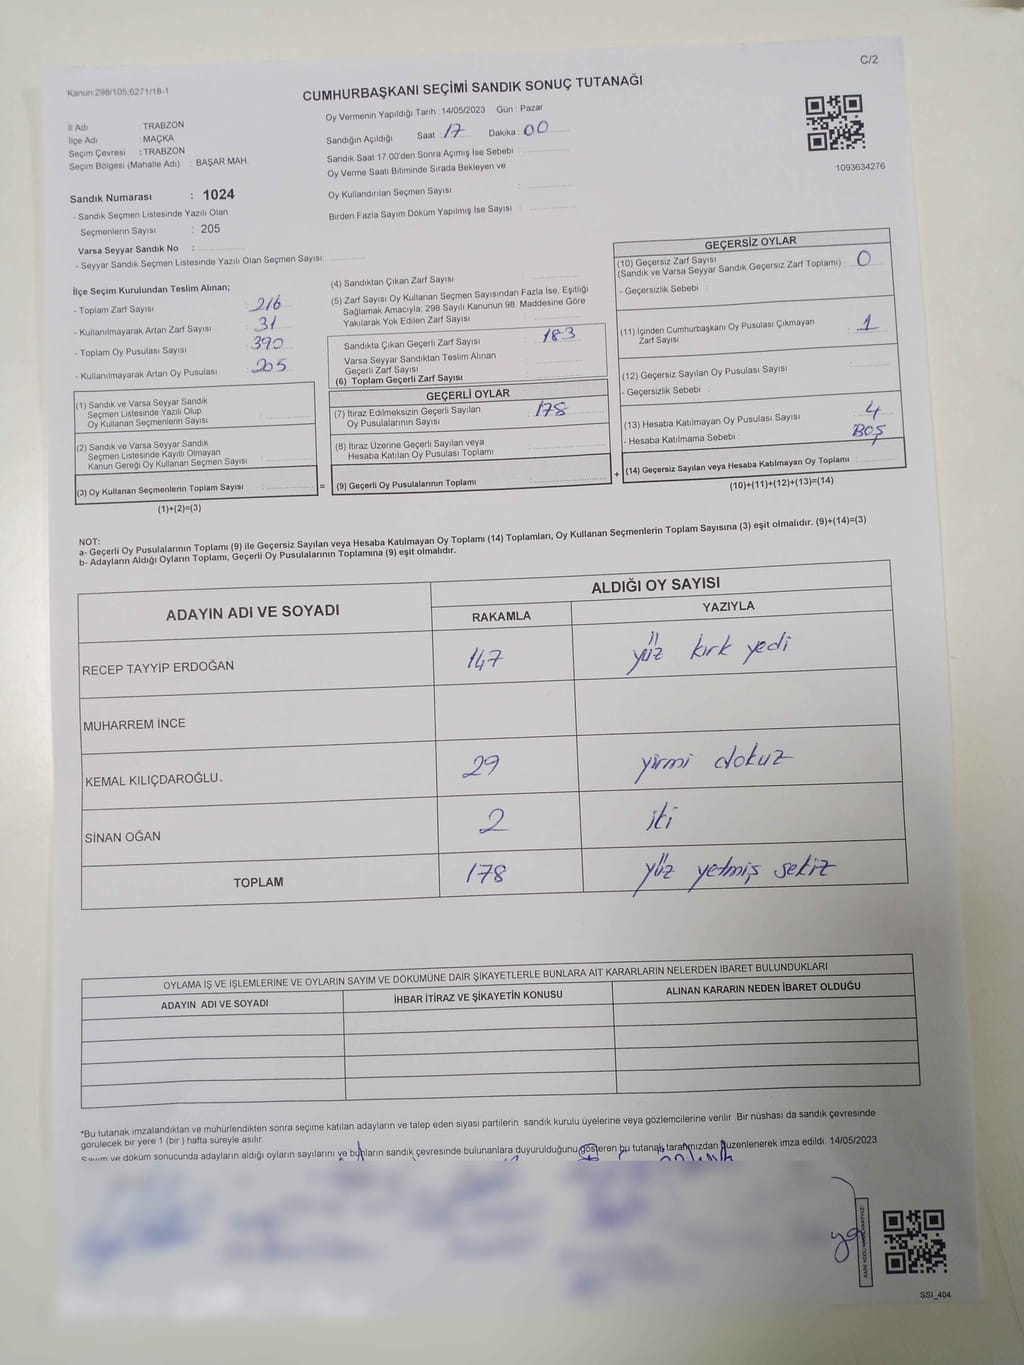 C/2
Kanun:298/105,6271/18-1
CUMHURBAŞKANI SEÇİMİ SANDIK SONUÇ TUTANAĞI
İl Adı : TRABZON
İlçe Adı : MAÇKA
Seçim Çevresi : TRABZON
Seçim Bölgesi (Mahalle Adı) : BAŞAR MAH.
Sandık Numarası : 1024
- Sandık Seçmen Listesinde Yazılı Olan
Seçmenlerin Sayısı : 205
Varsa Seyyar Sandık No :
- Seyyar Sandık Seçmen Listesinde Yazılı Olan Seçmen Sayısı:
Oy Vermenin Yapıldığı Tarih : 14/05/2023 Gün : Pazar
Sandığın Açıldığı Saat : 17 Dakika : 00
Sandık Saat 17:00'den Sonra Açımış İse Sebebi :
Oy Verme Saati Bitiminde Sırada Bekleyen ve
Oy Kullandırılan Seçmen Sayısı :
Birden Fazla Sayım Döküm Yapılmış İse Sayısı :
1093634276
İlçe Seçim Kurulundan Teslim Alınan;
- Toplam Zarf Sayısı : 216
- Kullanılmayarak Artan Zarf Sayısı : 31
- Toplam Oy Pusulası Sayısı : 390
- Kullanılmayarak Artan Oy Pusulası : 205
(1) Sandık ve Varsa Seyyar Sandık
Seçmen Listesinde Yazılı Olup
Oy Kullanan Seçmenlerin Sayısı :
(2) Sandık ve Varsa Seyyar Sandık
Seçmen Listesinde Kayıtlı Olmayan
Kanun Gereği Oy Kullanan Seçmen Sayısı :
(3) Oy Kullanan Seçmenlerin Toplam Sayısı :
(1)+(2)=(3)
(4) Sandıktan Çıkan Zarf Sayısı :
(5) Zarf Sayısı Oy Kullanan Seçmen Sayısından Fazla İse, Eşitliği
Sağlamak Amacıyla, 298 Sayılı Kanunun 98. Maddesine Göre
Yakılarak Yok Edilen Zarf Sayısı :
Sandıkta Çıkan Geçerli Zarf Sayısı : 183
Varsa Seyyar Sandıktan Teslim Alınan
Geçerli Zarf Sayısı :
(6) Toplam Geçerli Zarf Sayısı :
GEÇERLİ OYLAR
(7) İtiraz Edilmeksizin Geçerli Sayılan
Oy Pusulalarının Sayısı : 178
(8) İtiraz Üzerine Geçerli Sayılan veya
Hesaba Katılan Oy Pusulası Toplamı :
= (9) Geçerli Oy Pusulalarının Toplamı :
GEÇERSİZ OYLAR
(10) Geçersiz Zarf Sayısı
(Sandık ve Varsa Seyyar Sandık Geçersiz Zarf Toplamı) : 0
- Geçersizlik Sebebi :
(11) İçinden Cumhurbaşkanı Oy Pusulası Çıkmayan
Zarf Sayısı : 1
(12) Geçersiz Sayılan Oy Pusulası Sayısı :
- Geçersizlik Sebebi :
(13) Hesaba Katılmayan Oy Pusulası Sayısı : 4
- Hesaba Katılmama Sebebi : BOŞ
+ (14) Geçersiz Sayılan veya Hesaba Katılmayan Oy Toplamı :
(10)+(11)+(12)+(13)=(14)
NOT:
a- Geçerli Oy Pusulalarının Toplamı (9) ile Geçersiz Sayılan veya Hesaba Katılmayan Oy Toplamı (14) Toplamları, Oy Kullanan Seçmenlerin Toplam Sayısına (3) eşit olmalıdır. (9)+(14)=(3)
b- Adayların Aldığı Oyların Toplamı, Geçerli Oy Pusulalarının Toplamına (9) eşit olmalıdır.
ADAYIN ADI VE SOYADI
ALDIĞI OY SAYISI
RAKAMLA YAZIYLA
RECEP TAYYİP ERDOĞAN 147 yüz kırk yedi
MUHARREM İNCE
KEMAL KILIÇDAROĞLU 29 yirmi dokuz
SİNAN OĞAN 2 iki
TOPLAM 178 yüz yetmiş sekiz
OYLAMA İŞ VE İŞLEMLERİNE VE OYLARIN SAYIM VE DÖKÜMÜNE DAİR ŞİKAYETLERLE BUNLARA AİT KARARLARIN NELERDEN İBARET BULUNDUKLARI
ADAYIN ADI VE SOYADI İHBAR İTİRAZ VE ŞİKAYETİN KONUSU ALINAN KARARIN NEDEN İBARET OLDUĞU
*Bu tutanak imzalandıktan ve mühürlendikten sonra seçime katılan adayların ve talep eden siyasi partilerin sandık kurulu üyelerine veya gözlemcilerine verilir. Bir nüshası da sandık çevresinde
görülecek bir yere 1 (bir) hafta süreyle asılır.
Sayım ve döküm sonucunda adayların aldığı oyların sayılarını ve bunların sandık çevresinde bulunanlara duyurulduğunu gösteren bu tutanak tarafımızdan düzenlenerek imza edildi. 14/05/2023
SSI_404